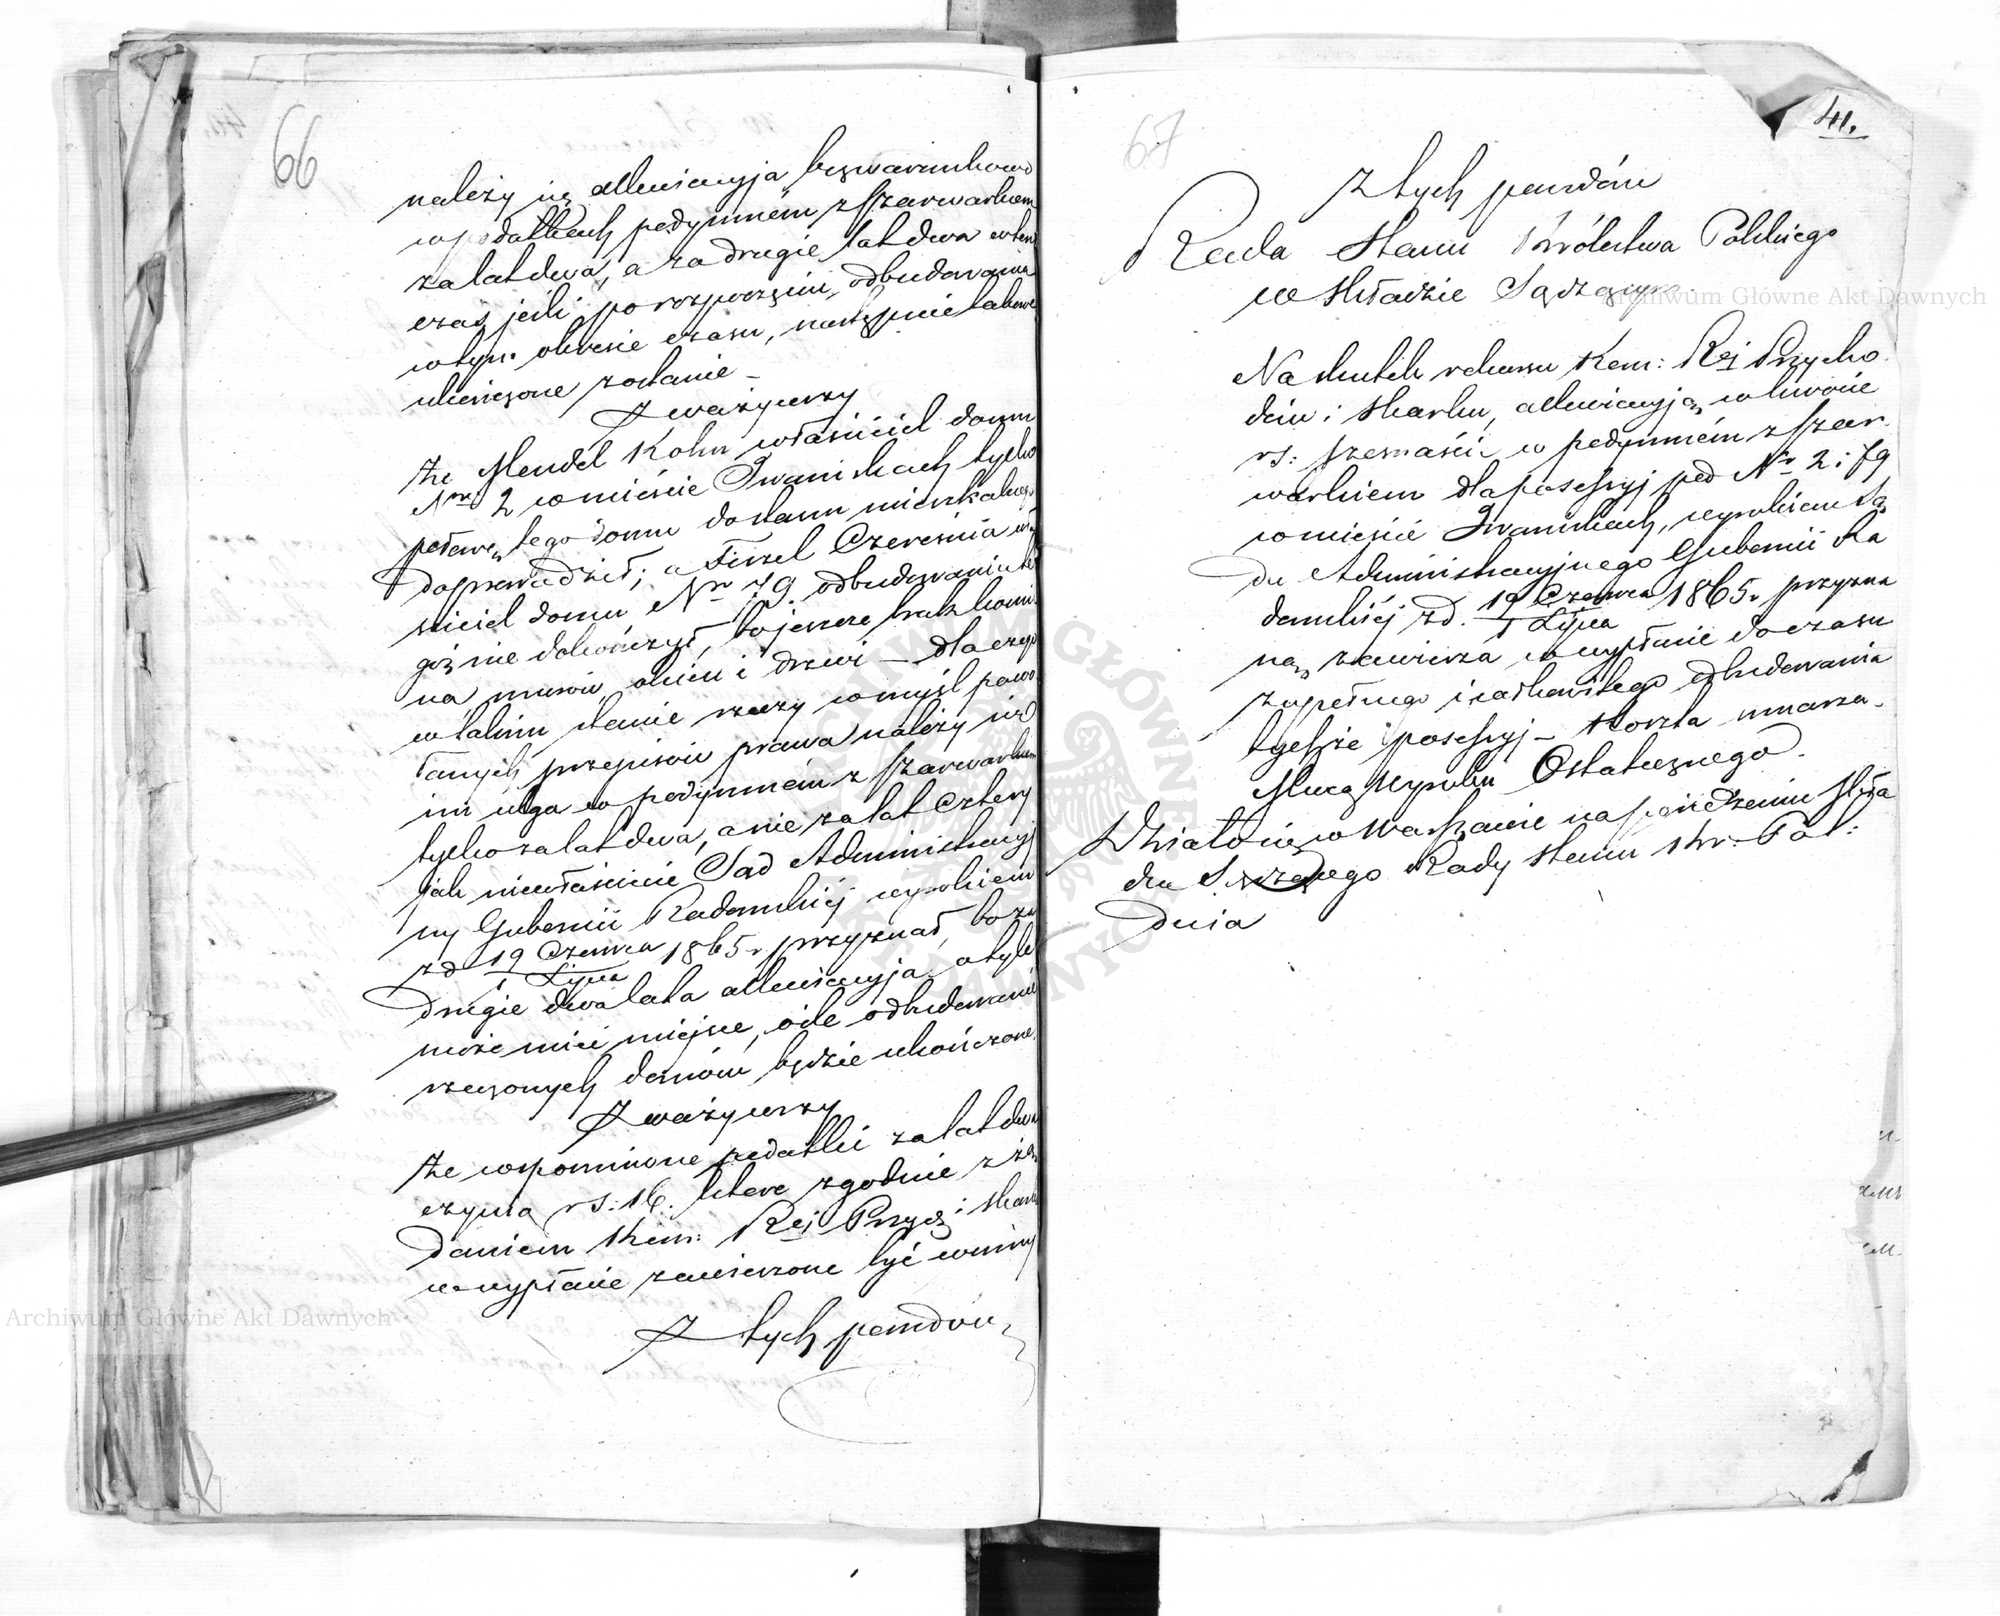 66
należy się allewiacyja bezwarunkowo
w podatkach podymném z szarwarkiem
za lat dwa, a za drugie lat dwa wten
czas jeśli po rozpoczęciu odbudowania
w tym okresie czasu, następnie takowe
ukończone zostanie –
Zważywszy
że Mendel Kohn właściciel domu
Nro 2 w mieście Iwaniskach tylko
połowę tego domu do stanu mieszkalnego
doprowadził; a Firzel Czereśnia wła
ściciel domu Nr 79. odbudowania te
goż nie dokończył, bo jeszcze brak komi
na murów okien i drzwi – dla czego
w takim stanie rzeczy w myśl powo
łanych przepisów prawa należy się
im ulga w podymném z szarwarkiem
tylko za lat dwa, a nie za lat cztery
jak niewłaściwie Sąd Administracyj
ny Gubernii Radomskiéj wyrokiem
z d. 19 Czerwca 1865 r. przyznał, bo za
1 Lipca
drugie dwa lata allewiacyja o tyle
może mieć miejsce, o ile odbudowanie
rzeczonych domów będzie ukończone.
Zważywszy
że wspomnione podatki za lat dwa
czynią rs: 16. które zgodnie z żą
daniem Kom: Rej Przych i Skarbu
w wypłacie zawieszone być winny
Z tych powodów
67
41.
Z tych powodów
Rada Stanu Królestwa Polskiego
w Składzie Sądzącym
Na skutek rekursu Kom: Rej Przycho
dów i Skarbu, allewiacyją w kwocie
rs: szesnaście w podymném z szar
warkiem dla posessyj pod Nr 2 i 79
w mieście Iwaniskach, wyrokiem Są
du Administracyjnego Gubernii Ra
domskiéj z d. 19 Czerwca 1865 r. przyzna
1 Lipca
ną zawiesza w wypłacie do czasu
zupełnego i całkowitego odbudowania
tychże posessyj – Koszta umarza –
Mocą Wyroku Ostatecznego.
Działo się w Warszawie na posiedzeniu Skła
du Sądzącego Rady Stanu Kr: Pol:
dnia
Archiwum Główne Akt Dawnych
Archiwum Główne Akt Dawnych